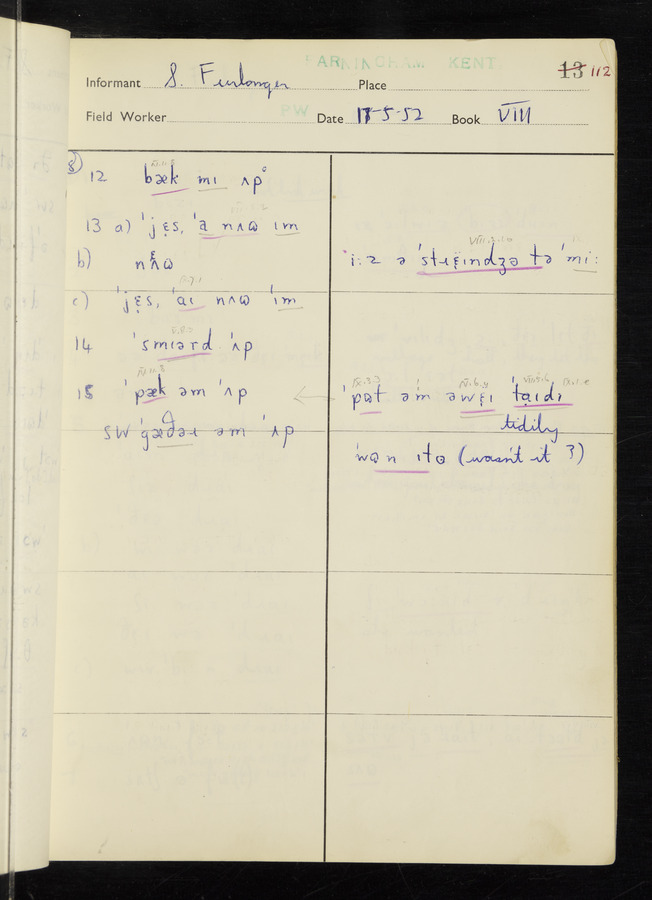 FARNINGHAM KENT
Informant S. Furlonger Place 13 112
Field Worker PW Date 17-5-52 Book VIII
8) 12 bæk mɪ ʌp
13 a) ˈjɛs, ˈa nʌɷ ɪm
b) nʌɷ
iːz ə ˈstrɛindʒə tə ˈmiː
c) ˈjɛs, ˈaɪ nʌɷ ˈɪm
14 ˈsmɪərd ˈʌp
15 ˈpæk əm ˈʌp
ˈpɷt əm əwɛɪ ˈtaɪdɪ
tidily
sw ˈgæðər əm ˈʌp
ˈwɒn ɪtə (wasn't it ?)